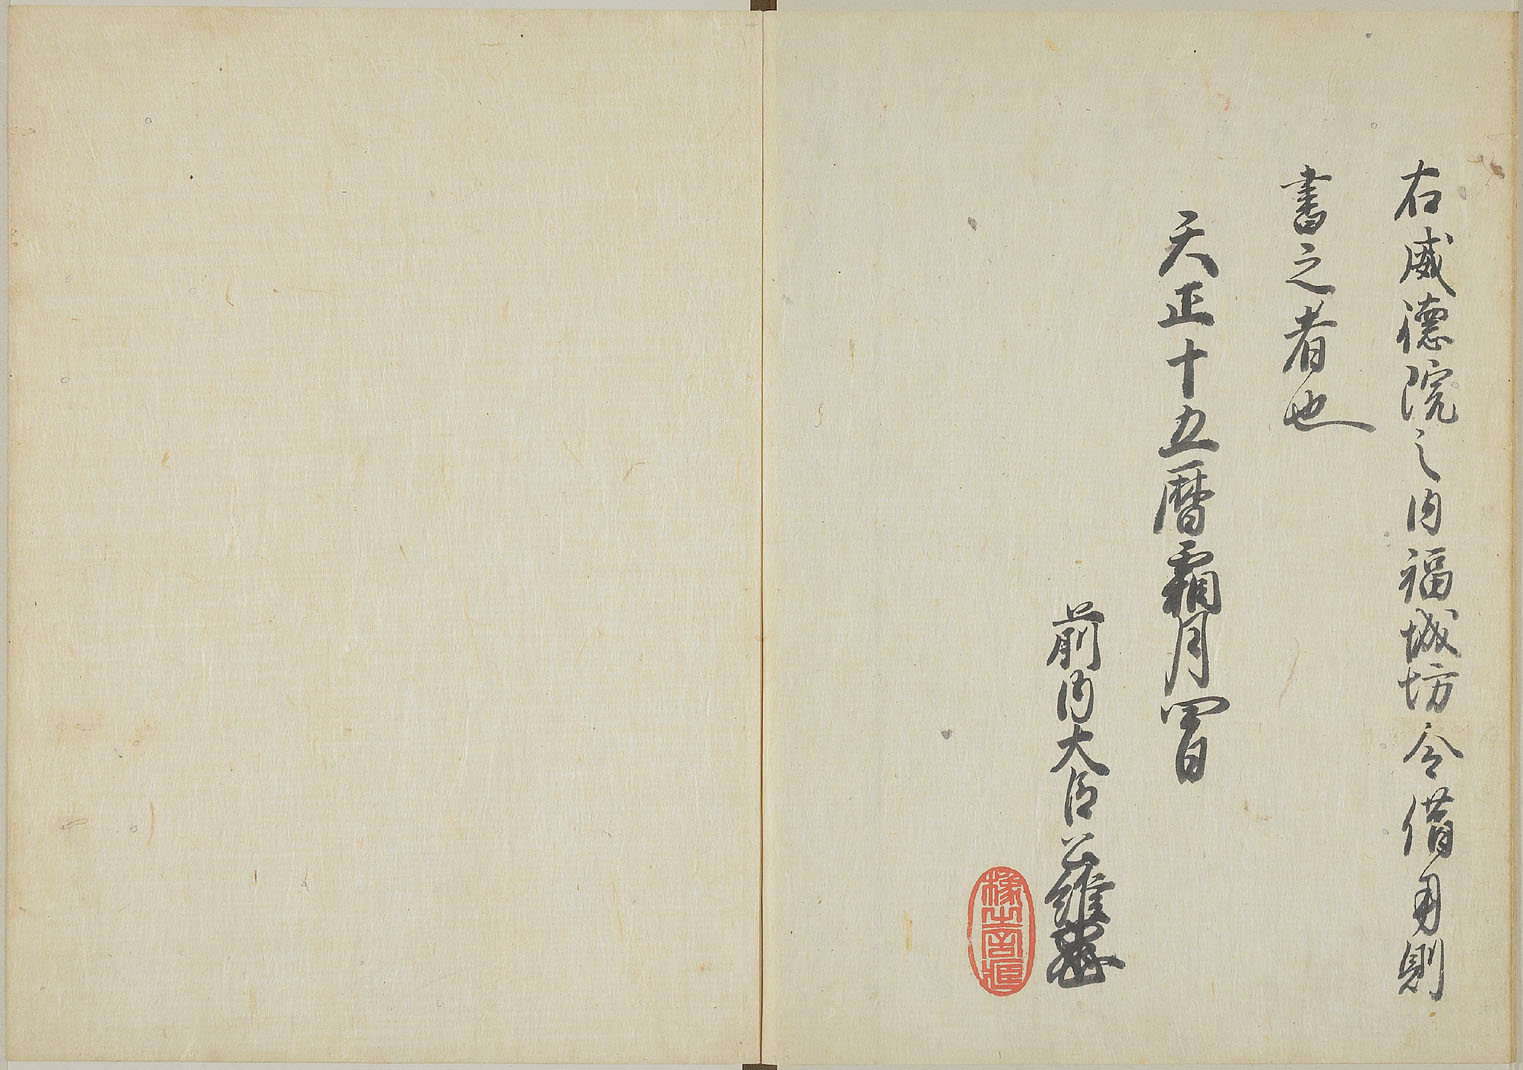 右威徳院之内福城坊令借用則
書之者也
天正十五暦霜月四日
前内大臣公維